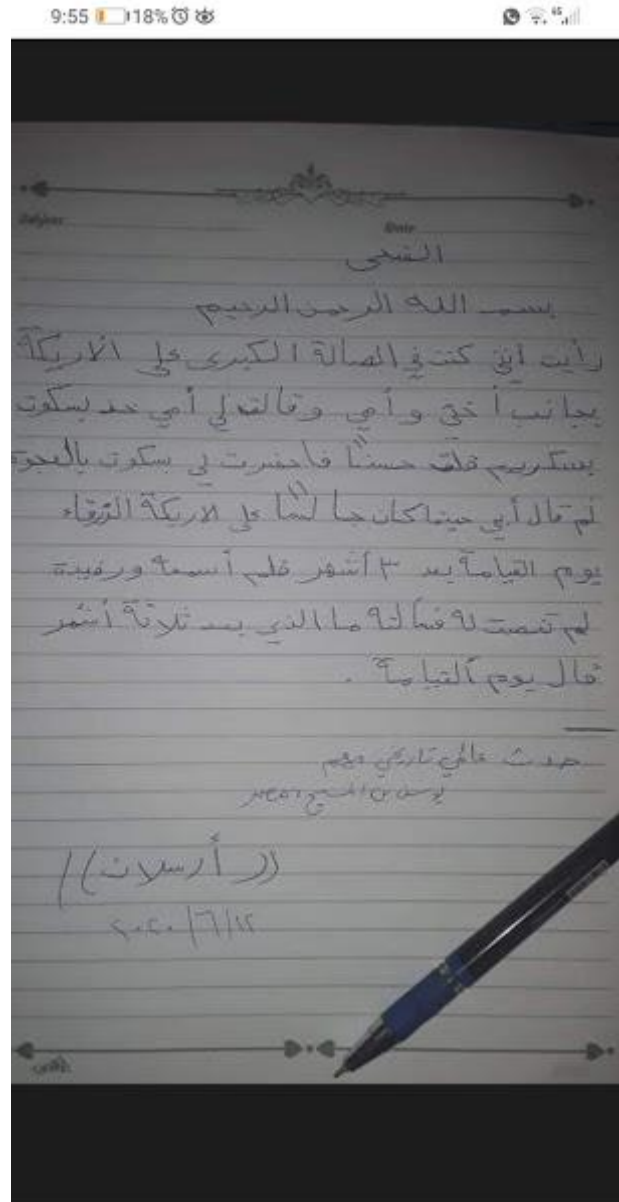 9:55 18%
4G
Subject
Date
الضحى
بسم الله الرحمن الرحيم
رأيت أني كنت في الصالة الكبرى على الأريكة
بجانب أختي وأمي وقالت لي أمي خذ بسكوت
بسكريم قلت حسنًا فاحضرت لي بسكوت بالعجوة
ثم قال أبي حينما كان جالسًا على الاريكة الزرقاء
يوم القيامة بعد ٣ أشهر فلم أسمعه ورفيدة
لم تنصت له فسألته ما الذي بعد ثلاثة أشهر
قال يوم القيامة .
حدث عالمي تاريخي مهم
يوسف بن المسيح
((أرسلان))
٢٠٢٠/٦/١٢